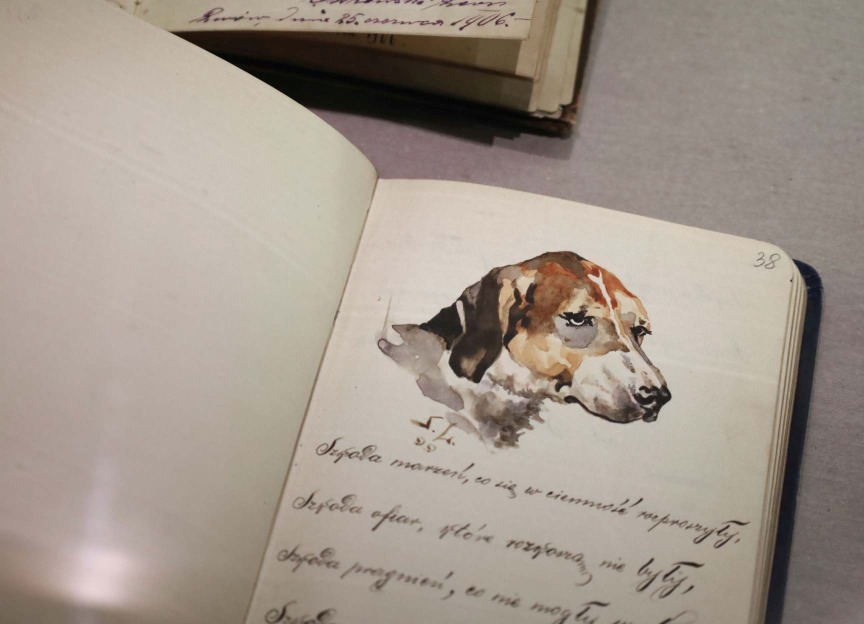 dnia 25. czerwca 1906.-
38
Szkoda marzeń, co się w ciemność rozproszyły,
Szkoda ofiar, które rozkoszą nie były,
Szkoda pragnień, co nie mogły
Szkoda